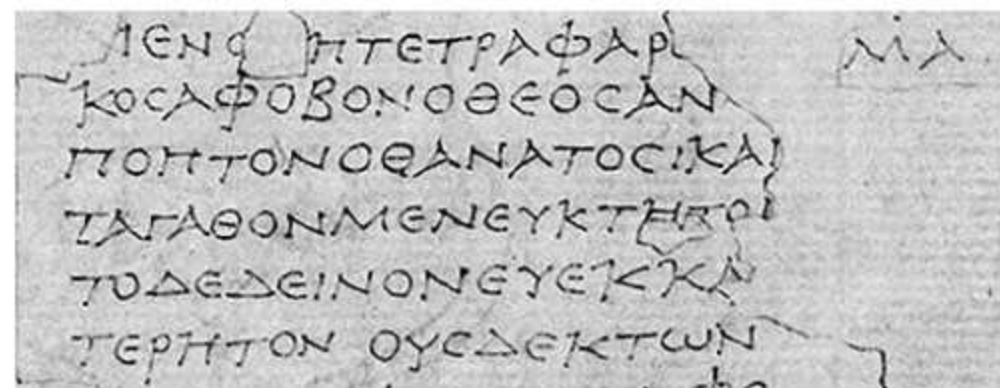 ΙΕΝϹ ΗΤΕΤΡΑΦΑΡ ΜΙΑ
ΚΟϹΑΦΟΒΟΝΟΘΕΟϹΑΝ
ΠΟΠΤΟΝΟΘΑΝΑΤΟϹΙΚΑΙ
ΤΑΓΑΘΟΝΜΕΝΕΥΚΤΗΤΟΙ
ΤΟΔΕΔΕΙΝΟΝΕΥΕΚΚΑ
ΤΕΡΗΤΟΝ ΟΥϹΔΕΚΤΩΝ